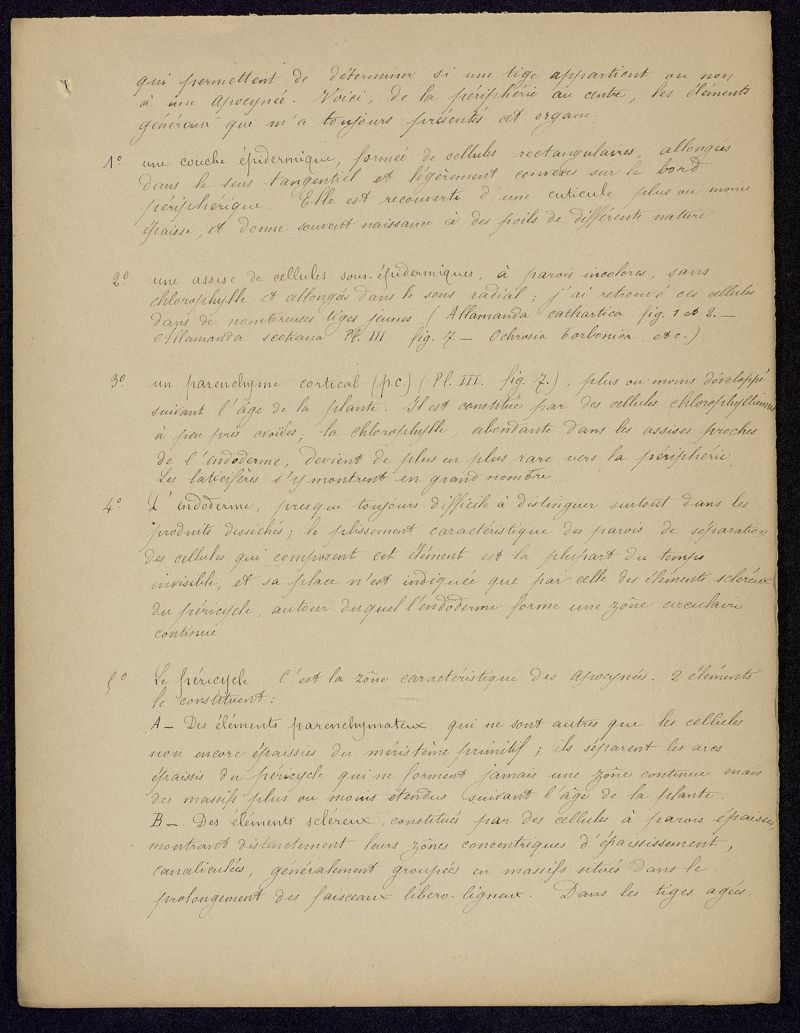 qui permettent de déterminer si une tige appartient ou non
à une Apocynée. Voici, de la périphérie au centre, les éléments
généraux que m'a toujours présentés cet organe.
1º une couche épidermique, formée de cellules rectangulaires, allongées
dans le sens tangentiel et légèrement convexes sur le bord
périphérique. Elle est recouverte d'une cuticule plus ou moins
épaisse, et donne souvent naissance à des poils de différente nature
2º une assise de cellules sous-épidermiques, à parois incolores, sans
chlorophylle et allongés dans le sens radial ; j'ai retrouvé ces cellules
dans de nombreuses tiges jeunes (Allamanda cathartica fig. 1 et 2. —
Allamanda scotiana Pl. III fig. 7 — Ochrosia borbonica, etc.)
3º un parenchyme cortical (p.c) (Pl. III. fig. 7.), plus ou moins développé
suivant l'âge de la plante. Il est constitué par des cellules chlorophylliennes
à peu près ovoïdes ; la chlorophylle, abondante dans les assises proches
de l'endoderme, devient de plus en plus rare vers la périphérie.
Les laticifères s'y montrent en grand nombre.
4º L'endoderme, presque toujours difficile à distinguer surtout dans les
produits desséchés ; le plissement caractéristique des parois de séparation
des cellules qui composent cet élément est la plupart du temps
invisible, et sa place n'est indiquée que par celle des éléments scléreux
du péricycle, autour duquel l'endoderme forme une zône circulaire
continue.
5º Le péricycle C'est la zône caractéristique des Apocynées. 2 éléments
le constituent :
A — Des éléments parenchymateux qui ne sont autres que les cellules
non encore épaissies du méristème primitif ; ils séparent les arcs
épaissis du péricycle qui ne forment jamais une zône continue mais
des massifs plus ou moins étendus suivant l'âge de la plante.
B — Des éléments scléreux, constitués par des cellules à parois épaisses
montrant distinctement leurs zônes concentriques d'épaississement,
canaliculées, généralement groupées en massifs situés dans le
prolongement des faisceaux libero-ligneux. Dans les tiges agées